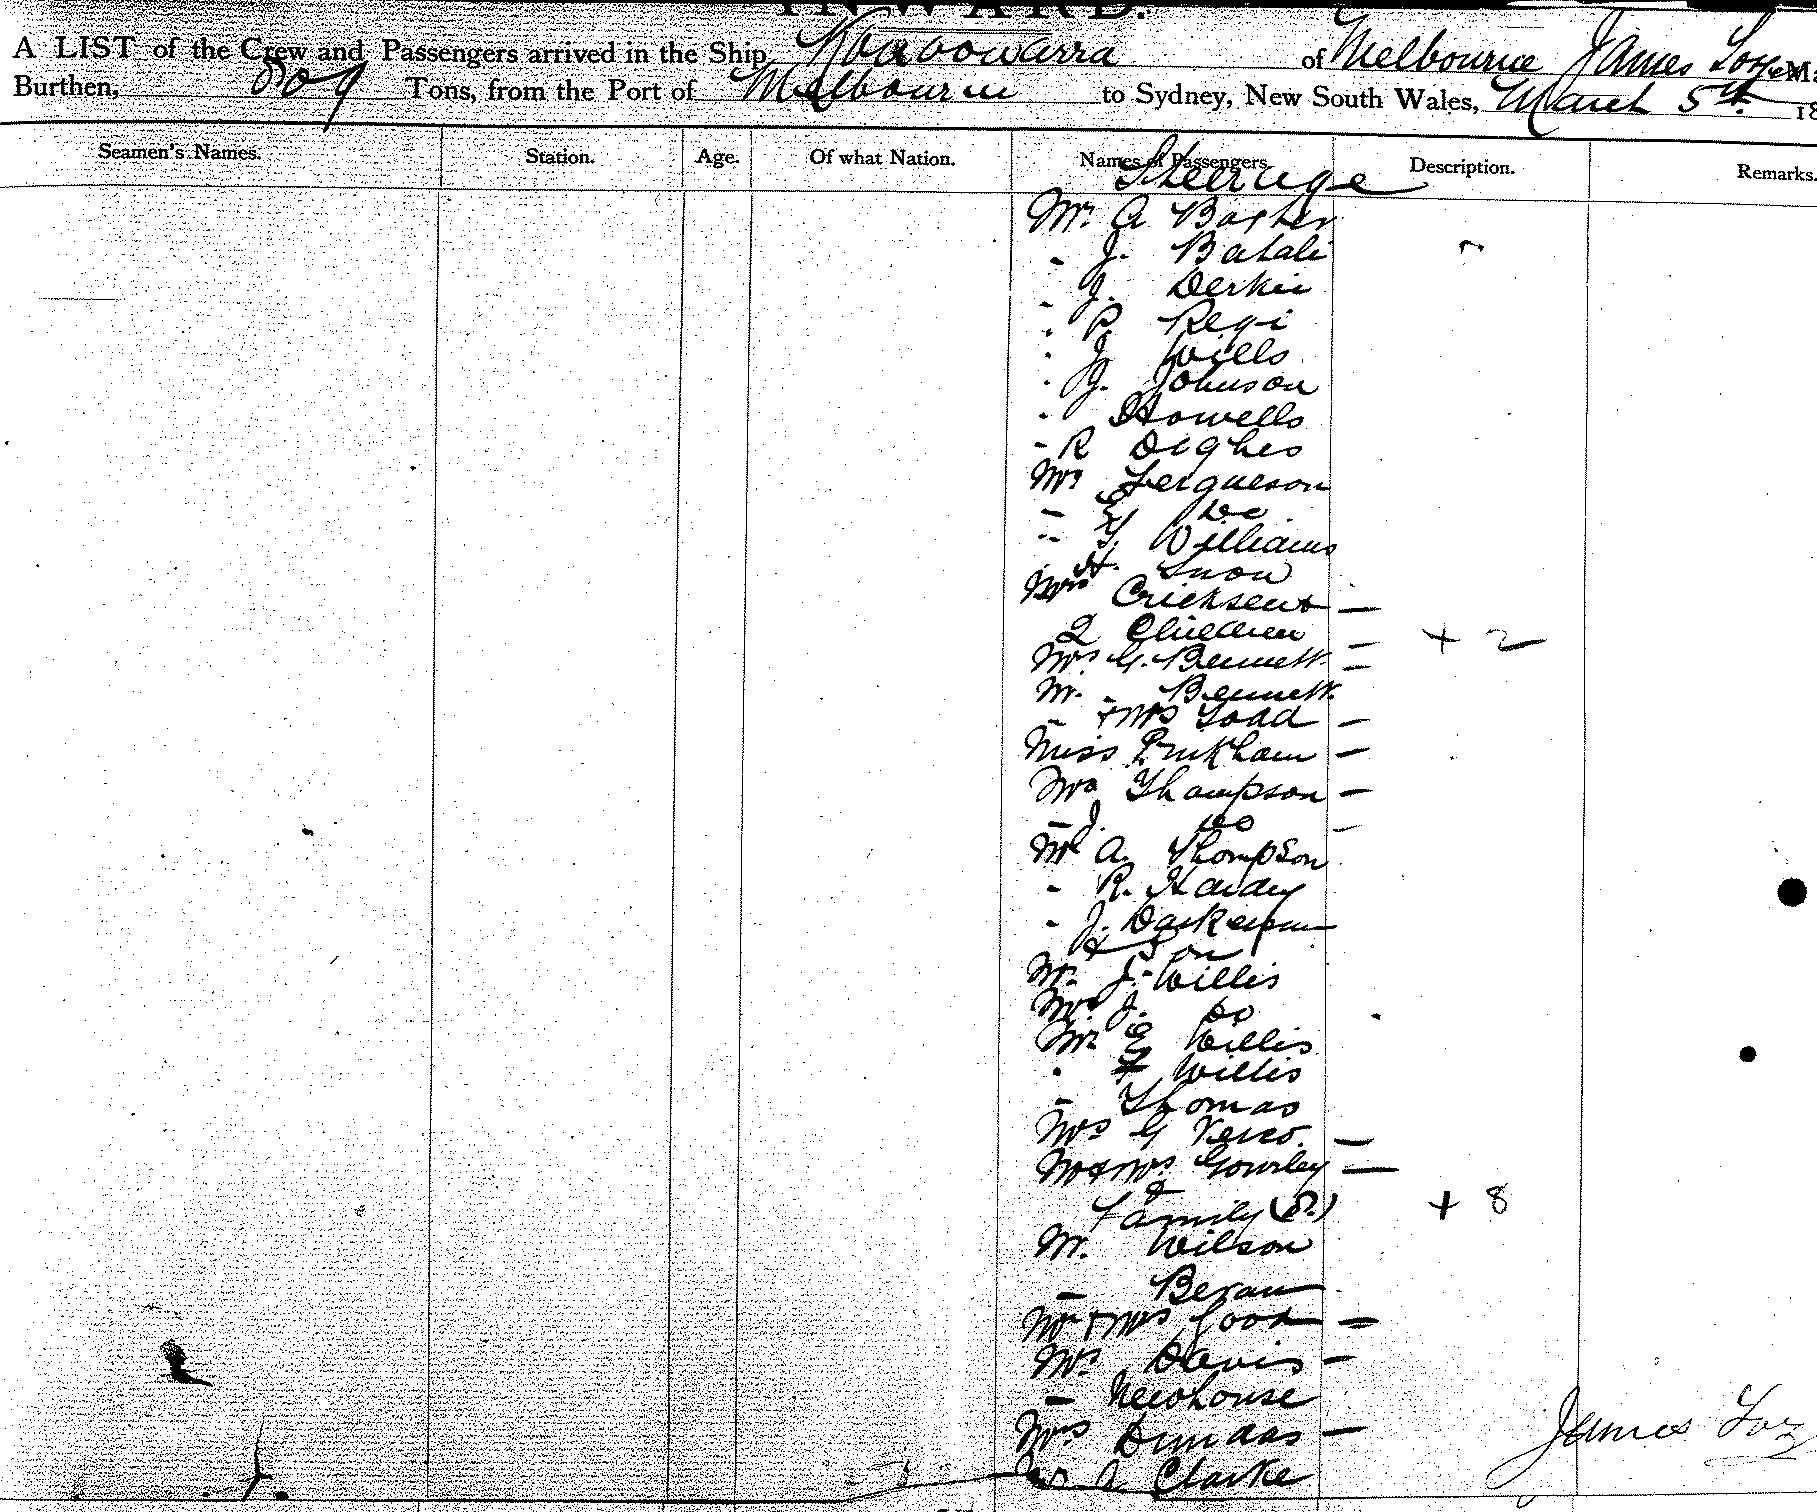 INWARD.
A LIST of the Crew and Passengers arrived in the Ship Konoowarra of Melbourne James
Burthen, 809 Tons, from the Port of Melbourne to Sydney, New South Wales, March 5th 18
Seamen's Names. Station. Age. Of what Nation. Names of Passengers. Description. Remarks.
Steerage
Mr. A Baxter
- J. Batali
- J.
. P. Regi
. J. Wills
. J. Johnson
. Howells
- R Dighes
Mrs Fergueson
- E Do
- G. Williams
. H. Snow
Mrs Cricksent -
2 Children - + 2
Mrs G. Bennett -
Mr. - Bennett
- + Mrs Load -
Miss Pinkham -
Mrs Thompson -
- J. Do -
Mr A. Thompson
- R. Hardy
- J.
& Son
Mr. J. Willis
Mrs J. Do
Mr. E Willis
. F Willis
- Thomas
Mrs G Verco. -
Mr & Mrs Gourley -
&
Family (8.) + 8
Mr. Wilson
- Bevan
Mr + Mrs Good -
Mrs Davis -
- Newhouse
Mrs Dundas -
A Clarke
James